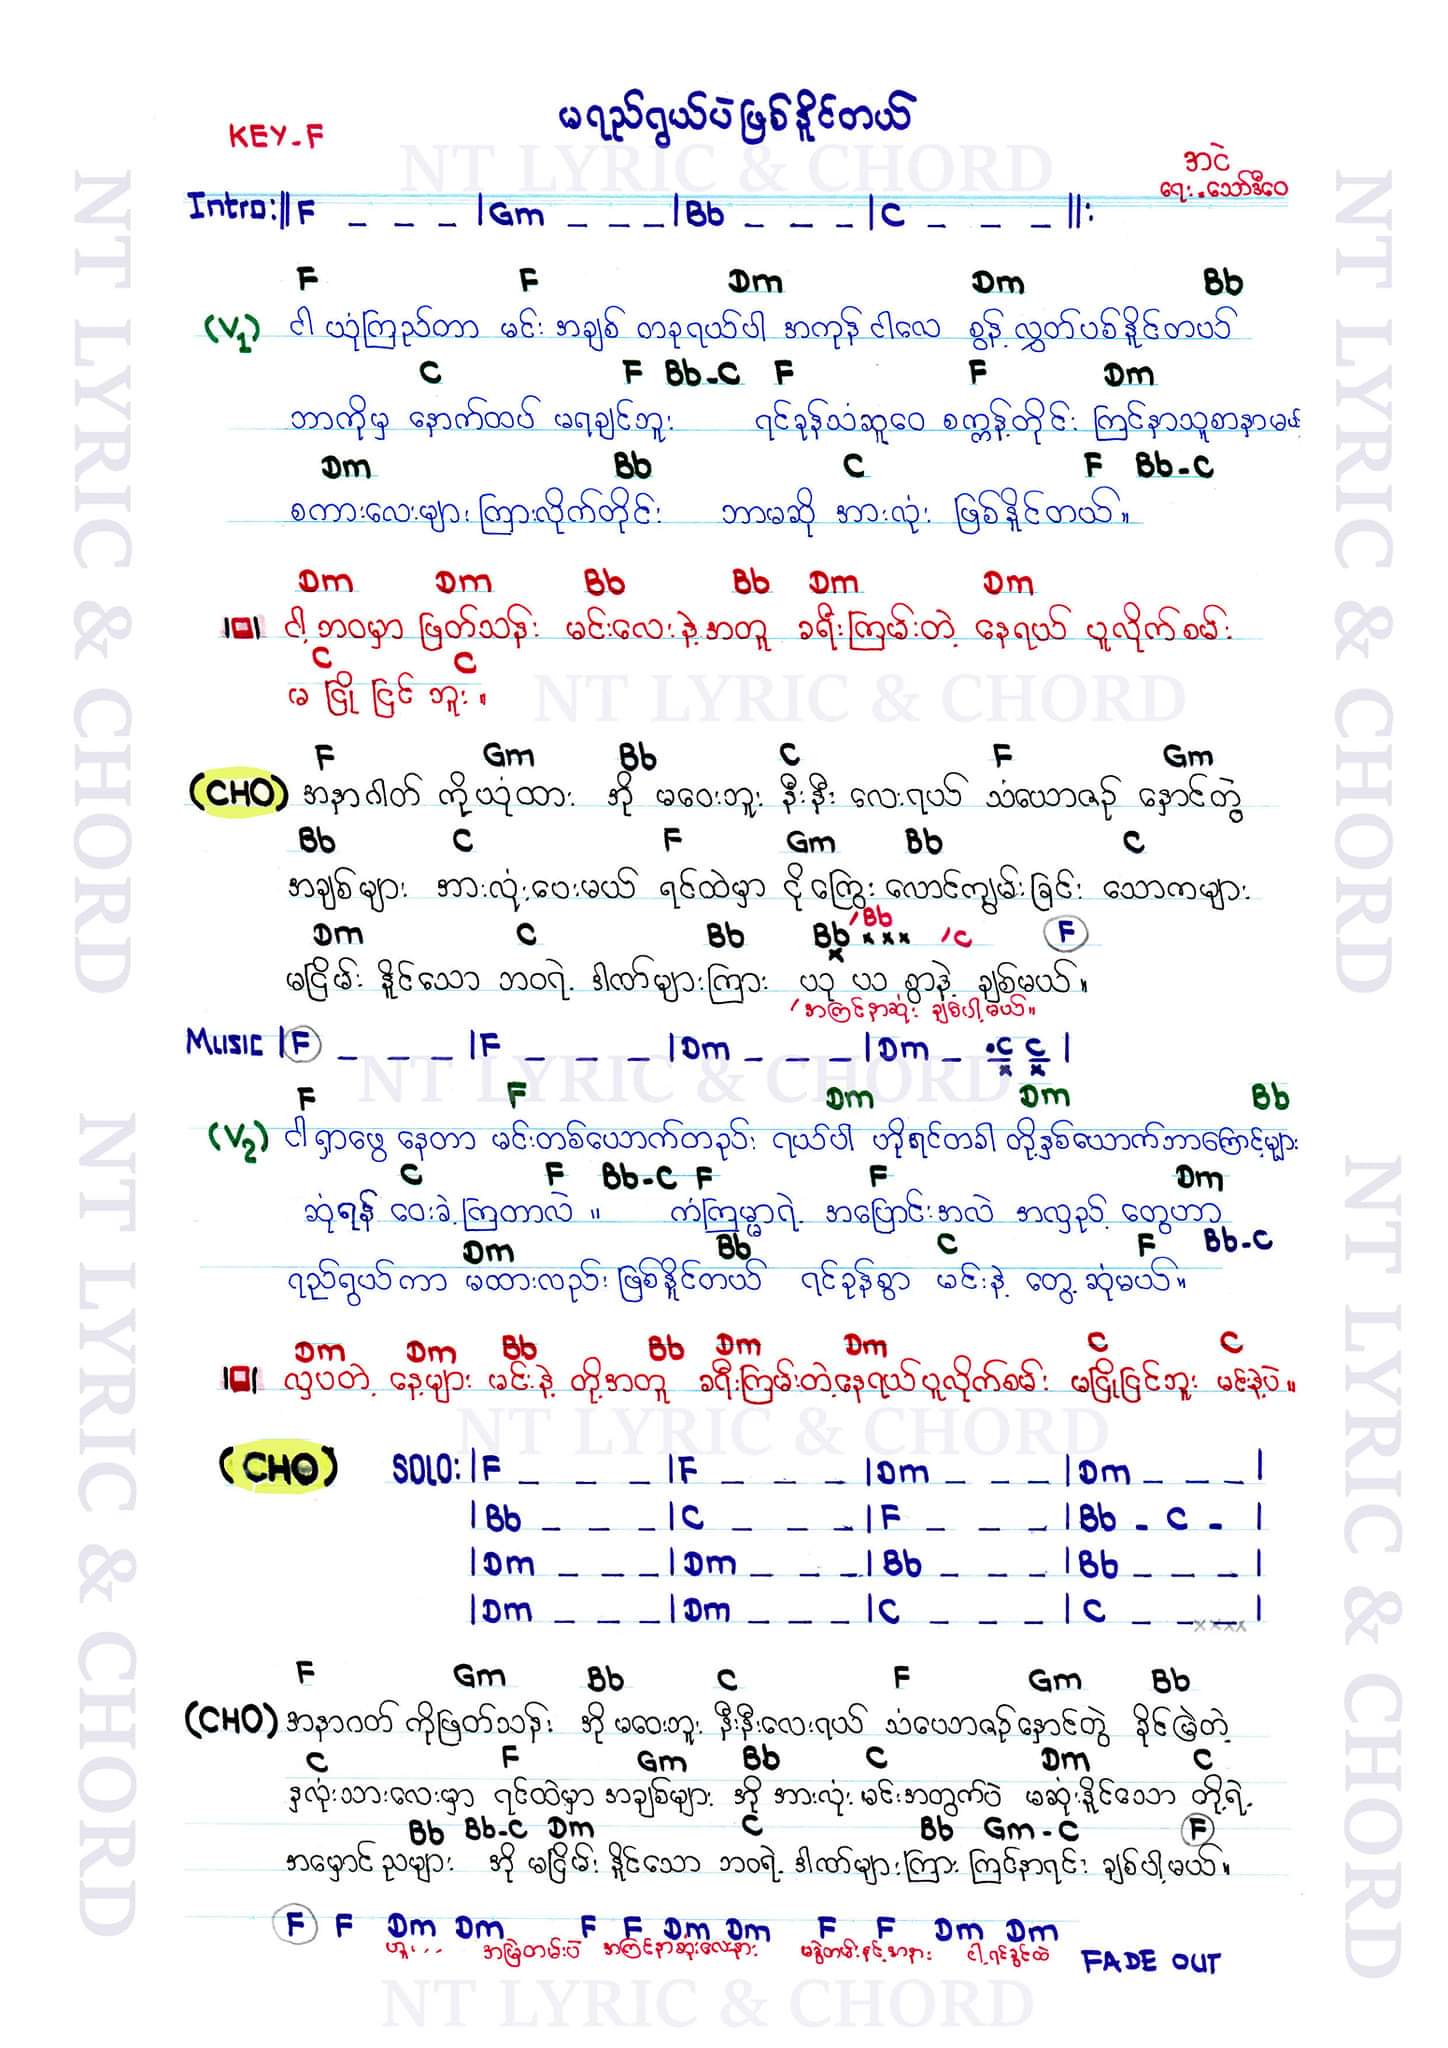 မရည်ရွယ်ပဲဖြစ်နိုင်တယ်
KEY-F
အငဲ
ရေး-သော်ဒီဝေ
Intro:|| F _ _ _ | Gm _ _ _ | Bb _ _ _ | C _ _ _ ||:
F F Dm Dm Bb
(V1) ငါ ယုံကြည်တာ မင်း အချစ် တခုရယ်ပါ အကုန် ငါလေ စွန့် လွှတ်ပစ်နိုင်တယ်
C F Bb-C F F Dm
ဘာကိုမှ နောက်ထပ် မရချင်ဘူး ရင်ခုန်သံဆူဝေ စက္ကန့်တိုင်း ကြင်နာသူစာနာမယ့်
Dm Bb C F Bb-C
စကားလေးများ ကြားလိုက်တိုင်း ဘာမဆို အားလုံး ဖြစ်နိုင်တယ်။
Dm Dm Bb Bb Dm Dm
ငါ့ဘဝမှာ ဖြတ်သန်း မင်းလေးနဲ့အတူ ခရီးကြမ်းတဲ့ နေရယ် ပူလိုက်စမ်း
C C
မ ငြို ငြင် ဘူး။
F Gm Bb C F Gm
(CHO) အနာဂါတ် ကိုယုံထား အို မဝေးဘူး နီးနီး လေးရယ် သံယောဇဉ် နှောင်တွဲ
Bb C F Gm Bb C
အချစ်များ အားလုံးပေးမယ် ရင်ထဲမှာ ငိုကြွေး လောင်ကျွမ်းခြင်း သောကများ
Dm C Bb Bb x 'Bb xxx 'C F
မငြိမ်း နိုင်သော ဘဝရဲ့ ဒါဏ်များကြား ယုယ စွာနဲ့ ချစ်မယ်။
'အကြင်နာဆုံး ချစ်ပါ့မယ်။
MUSIC | F _ _ _ | F _ _ _ | Dm _ _ _ | Dm _ .C x C x |
F F Dm Dm Bb
(V2) ငါ ရှာဖွေ နေတာ မင်းတစ်ယောက်တည်း ရယ်ပါ ဟိုရင်တခါ တို့နှစ်ယောက်ဘာကြောင့်များ
C F Bb-C F F Dm
ဆုံရန် ဝေးခဲ့ကြတာလဲ ။ ကံကြမ္မာရဲ့ အပြောင်းအလဲ အလှည့် တွေဟာ
Dm Bb C F Bb-C
ရည်ရွယ်ကာ မထားလည်း ဖြစ်နိုင်တယ် ရင်ခုန်စွာ မင်းနဲ့ တွေ့ ဆုံမယ်။
Dm Dm Bb Bb Dm Dm C C
လှပတဲ့ နေ့များ မင်းနဲ့ တို့အတူ ခရီးကြမ်းတဲ့နေရယ်ပူလိုက်စမ်း မငြိုငြင်ဘူး မင်းနဲ့ပဲ။
(CHO) SOLO: | F _ _ _ | F _ _ _ | Dm _ _ _ | Dm _ _ _ |
| Bb _ _ _ | C _ _ _ | F _ _ _ | Bb - C - |
| Dm _ _ _ | Dm _ _ _ | Bb _ _ _ | Bb _ _ _ |
| Dm _ _ _ | Dm _ _ _ | C _ _ _ | C _ _ _ xxxx |
F Gm Bb C F Gm Bb
(CHO) အနာဂတ် ကိုဖြတ်သန်း အို မဝေးဘူး နီးနီးလေးရယ် သံယောဇဉ်နှောင်တွဲ ခိုင်မြဲတဲ့
C F Gm Bb C Dm C
နှလုံးသားလေးမှာ ရင်ထဲမှာ အချစ်များ အို အားလုံး မင်းအတွက်ပဲ မဆုံးနိုင်သော တို့ရဲ့
Bb Bb-C Dm C Bb Gm-C F
အမှောင် ညများ အို မငြိမ်း နိုင်သော ဘဝရဲ့ ဒါဏ်များကြား ကြင်နာရင်း ချစ်ပါ့မယ်။
F F Dm Dm F F Dm Dm F F Dm Dm
အမြဲတမ်းပဲ
FADE OUT
NT LYRIC & CHORD
NT LYRIC & CHORD
NT LYRIC & CHORD
NT LYRIC & CHORD
NT LYRIC & CHORD
NT LYRIC & CHORD
NT LYRIC & CHORD
NT LYRIC & CHORD
NT LYRIC & CHORD